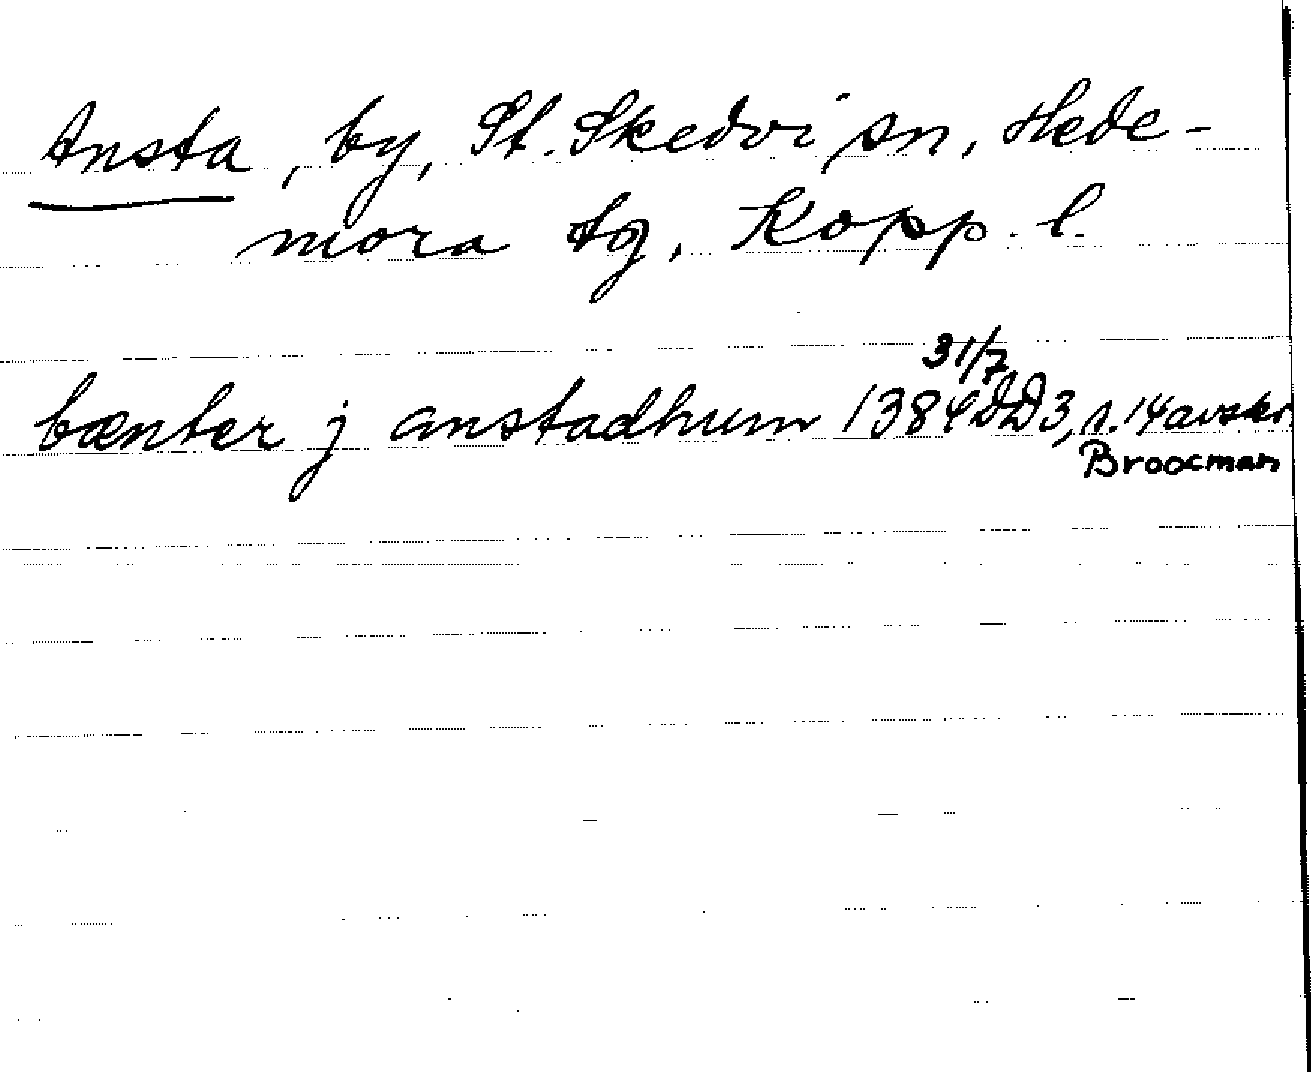 Ansta, by, St. Skedvi sn, Hede-
mora tg, Kopp. l.
31/7
bænter j anstadhum 1384 DD3, s. 14 avskr.
Broocman